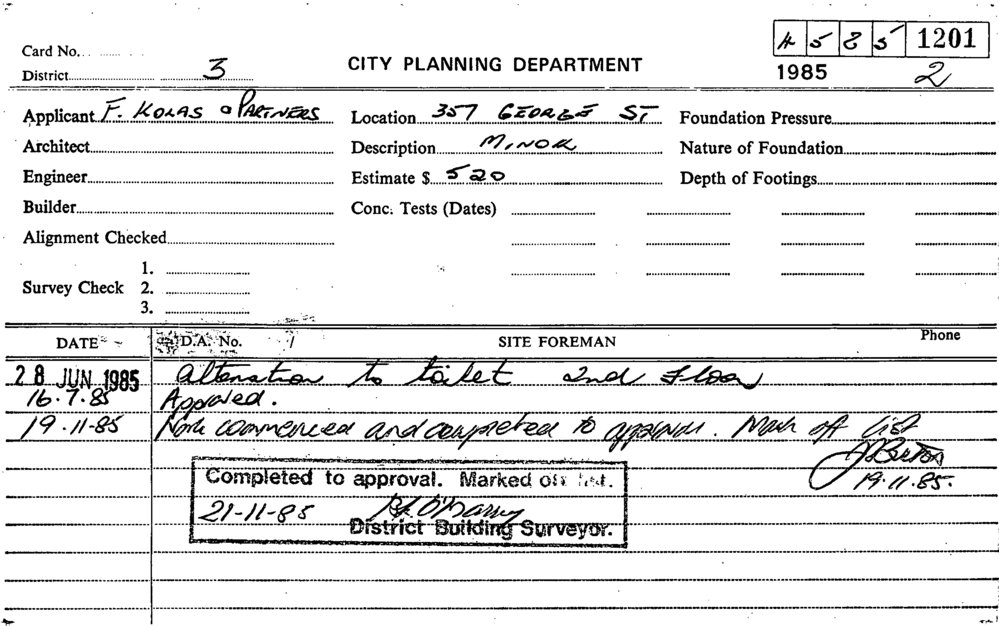 Card No.
4 5 8 5 1201
District 3
CITY PLANNING DEPARTMENT
1985 2
Applicant F. KOLAS & PARTNERS Location 357 GEORGE ST Foundation Pressure
Architect Description MINOR Nature of Foundation
Engineer Estimate $ 520 Depth of Footings
Builder Conc. Tests (Dates)
Alignment Checked
1.
Survey Check 2.
3.
DATE D.A. No. / SITE FOREMAN Phone
28 JUN 1985 Alteration to toilet 2nd Floor
16.7.85 Approved.
19.11.85 Work commenced and completed to approval. Mark off list
19.11.85.
Completed to approval. Marked off list.
21-11-85
District Building Surveyor.